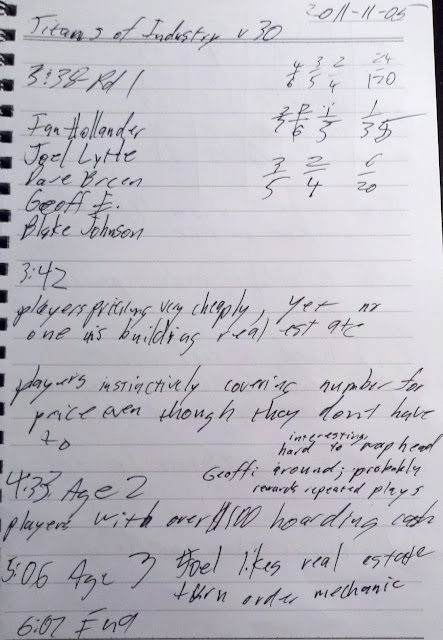 2011-11-05
Titans of Industry v30
3:38 Rd 1
4/6 3/5 2/4 24/120
3/7 2/6 1/5 1/35
3/5 2/4 6/20
Ian Hollander
Joel Lytte
Dave Breen
Geoff E.
Blake Johnson
3:42
players pricing very cheaply, yet no
one is building real estate
players instinctively covering number for
price even though they don't have
to
Geoff: interesting, hard to wrap head
around; probably
rewards repeated plays
4:33 Age 2
players with over $100 hoarding cash
5:06 Age 3 Joel likes real estate
turn order mechanic
6:07 End